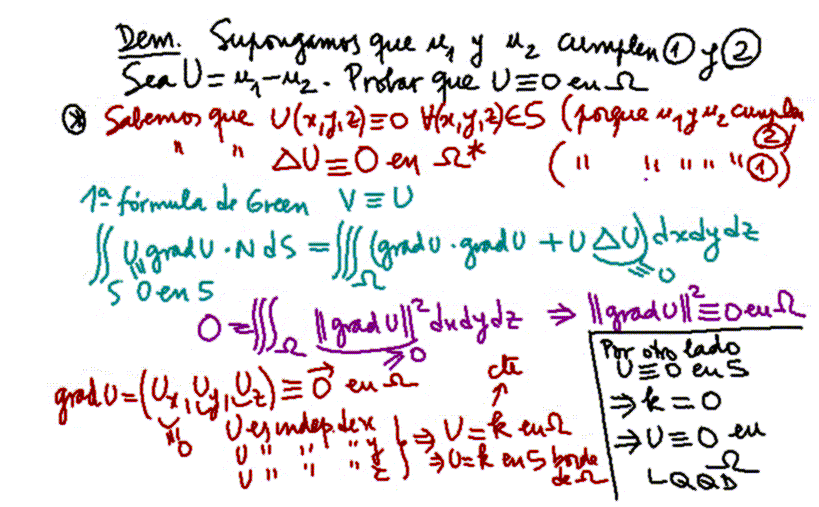 Dem. Supongamos que u₁ y u₂ cumplen ① y ②
Sea U = u₁ - u₂. Probar que U ≡ 0 en Ω
⊛ Sabemos que U(x,y,z) ≡ 0 ∀(x,y,z) ∈ S (porque u₁ y u₂ cumplen ②)
" " ΔU ≡ 0 en Ω* (" " " " " ①)
1ª fórmula de Green V ≡ U
∬_S U grad U · N dS = ∭_Ω (grad U · grad U + U ΔU) dxdydz
0 en S
≡ 0
0 = ∭_Ω ||grad U||² dxdydz ⇒ ||grad U||² ≡ 0 en Ω
≥ 0
grad U = (Ux, Uy, Uz) ≡ 0⃗ en Ω
0
U es indep. de x
U " " " y
U " " " z
cte
⇒ U = k en Ω
⇒ U = k en S borde de Ω
Por otro lado
U ≡ 0 en S
⇒ k = 0
⇒ U ≡ 0 en
Ω
LQQD